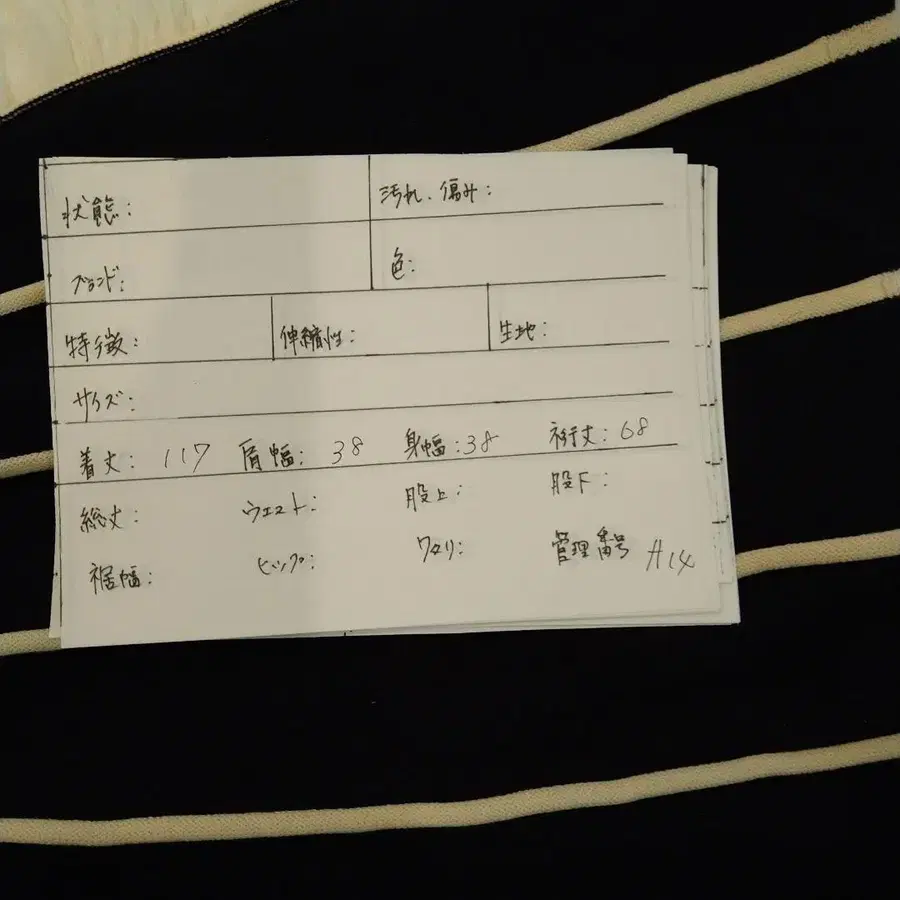 状態: 汚れ、傷み:
ブランド: 色:
特徴: 伸縮性: 生地:
サイズ:
着丈: 117 肩幅: 38 身幅: 38 裄丈: 68
総丈: ウエスト: 股上: 股下:
裾幅: ヒップ: ワタリ: 管理番号 A14